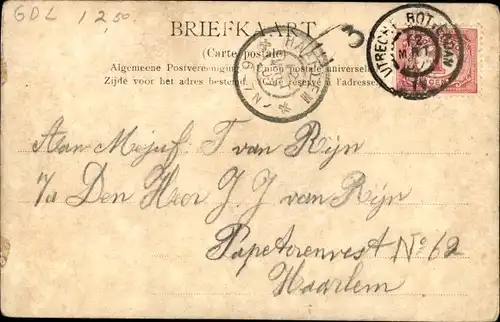 GDL 12,50
BRIEFKAART
(Carte postale)
Algemeene Postvereeniging Union postale universelle
Zijde voor het adres bestemd. Côté réservé à l'adresse.
3
UTRECHT ROTTERDAM
HAARLEM
Aan Mejuf: T van Rijn
p/a Den Heer J J van Rijn
Papetorenvest No 62
Haarlem